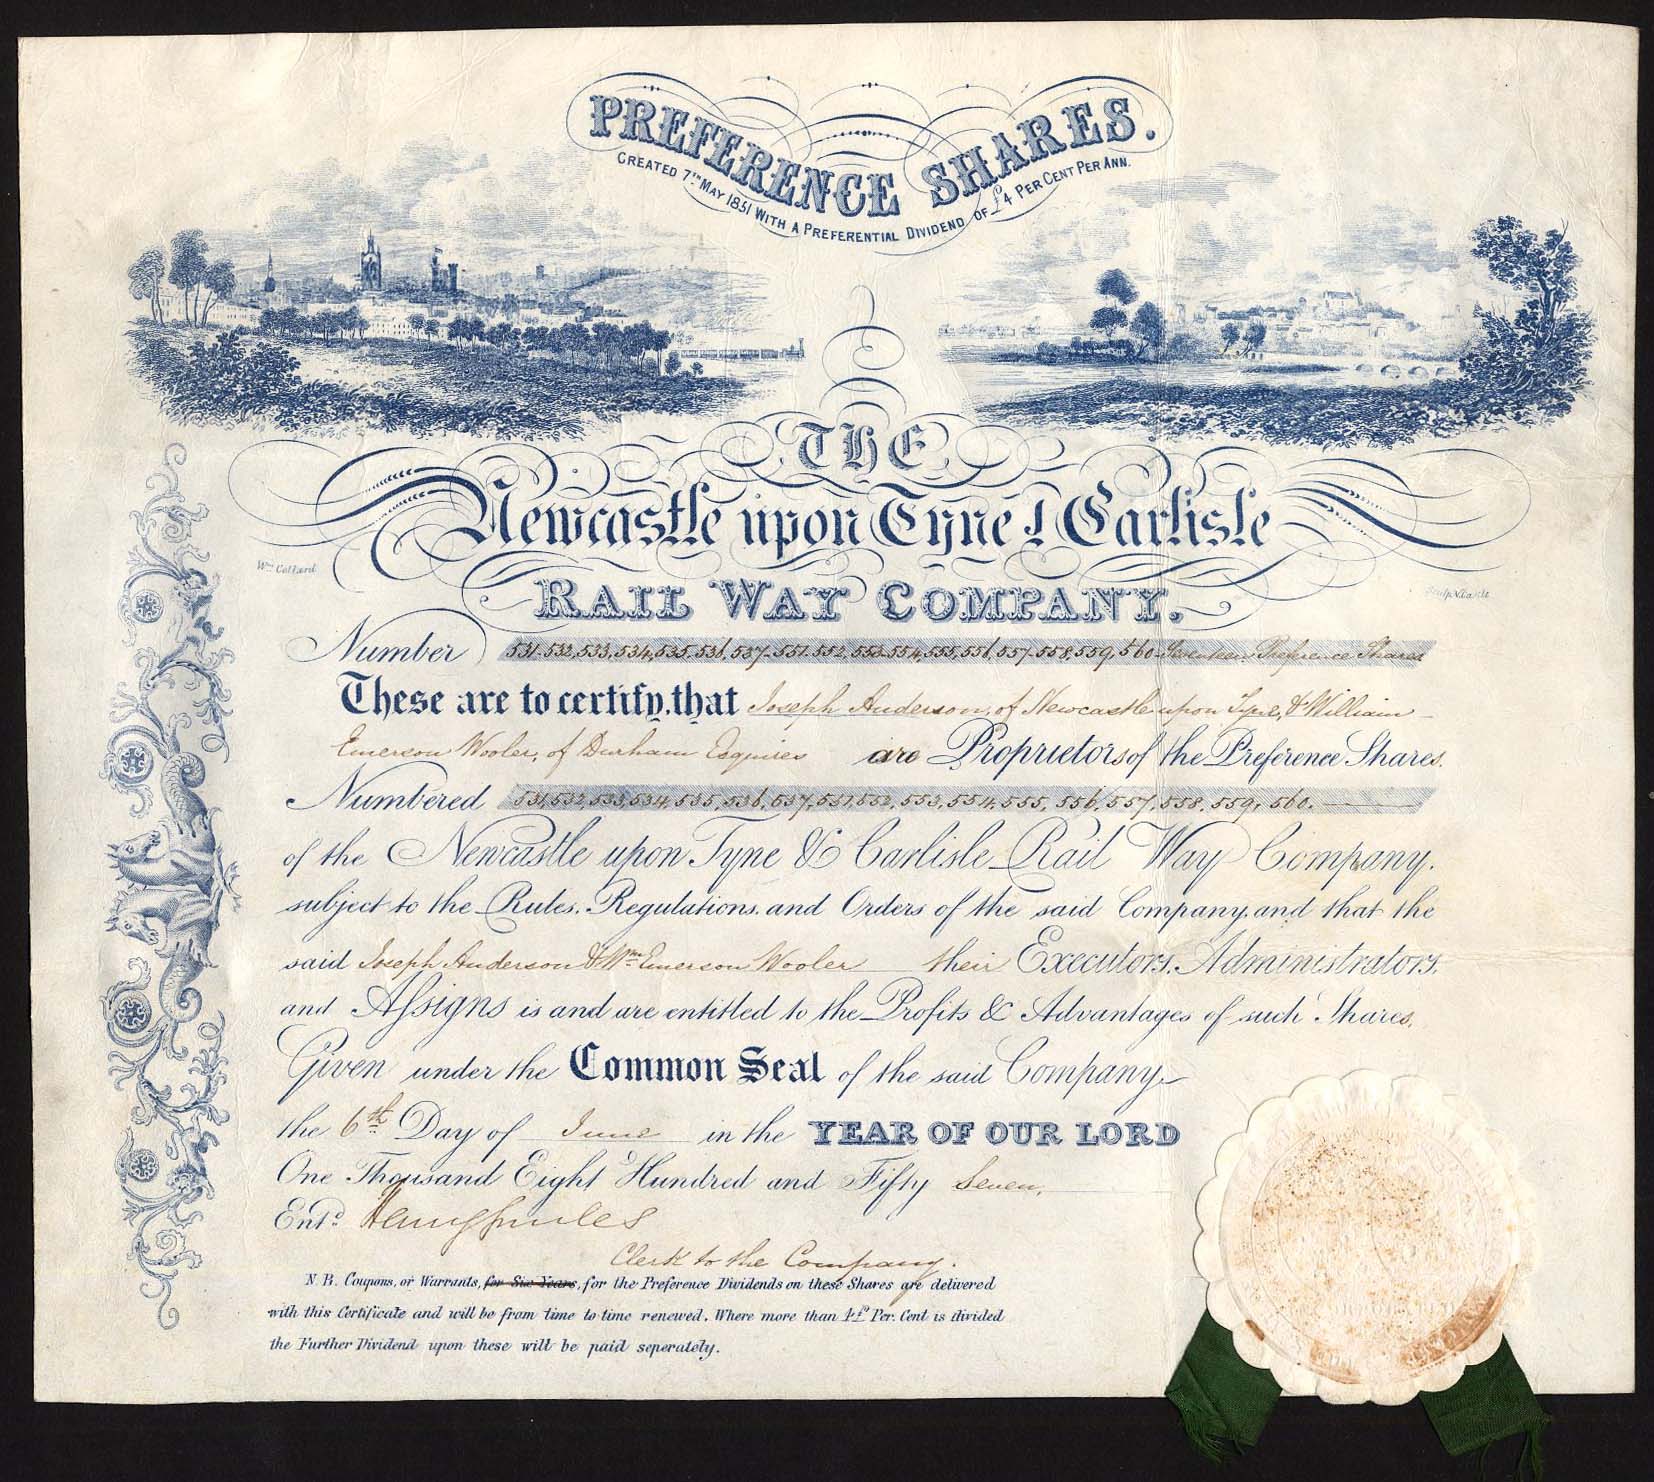 PREFERENCE SHARES.
CREATED 7TH MAY 1851 WITH A PREFERENTIAL DIVIDEND OF £4 PER CENT PER ANN.
THE
Newcastle upon Tyne & Carlisle
Wm. Collard
RAIL WAY COMPANY.
Number 531-532,533,534,535,536,537-551-552,553-554,555,556,557-558,559,560-Seventeen Preference Shares
These are to certify, that Joseph Anderson, of Newcastle upon Tyne, & William
Emerson Wooler, of Durham Esquires are Proprietors of the Preference Shares.
Numbered 531,532,533,534,535,536,537,551,552,553,554,555,556,557,558,559,560.
of the Newcastle upon Tyne & Carlisle Rail Way Company.
subject to the Rules, Regulations, and Orders of the said Company, and that the
said Joseph Anderson & Wm. Emerson Wooler their Executors, Administrators,
and Assigns is and are entitled to the Profits & Advantages of such Shares.
Given under the Common Seal of the said Company,
the 6th Day of June in the YEAR OF OUR LORD
One Thousand Eight Hundred and Fifty Seven.
Entd.
Clerk to the Company.
N.B. Coupons, or Warrants, for Six Years, for the Preference Dividends on these Shares are delivered
with this Certificate and will be from time to time renewed. Where more than 4£ Per. Cent is divided
the Further Dividend upon these will be paid seperately.